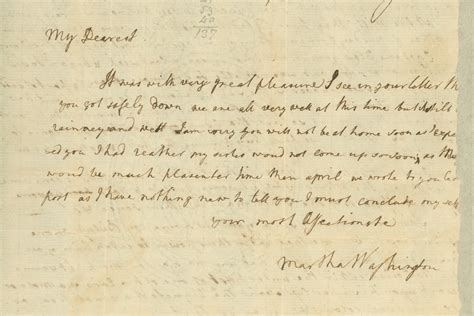 53
40
137
My Dearest
It was with very great pleasure I see in your letter th
you got safely down we are all very well at this time but it still
rainney and wett I am sorry you will not be at home soon as I expe
ed you I had reather my sister woud not come up so soon, as May
woud be much plasenter time than april we wrote to you last
post as I have nothing new to tell you I must conclude my self
your most Affectionate
Martha Washington